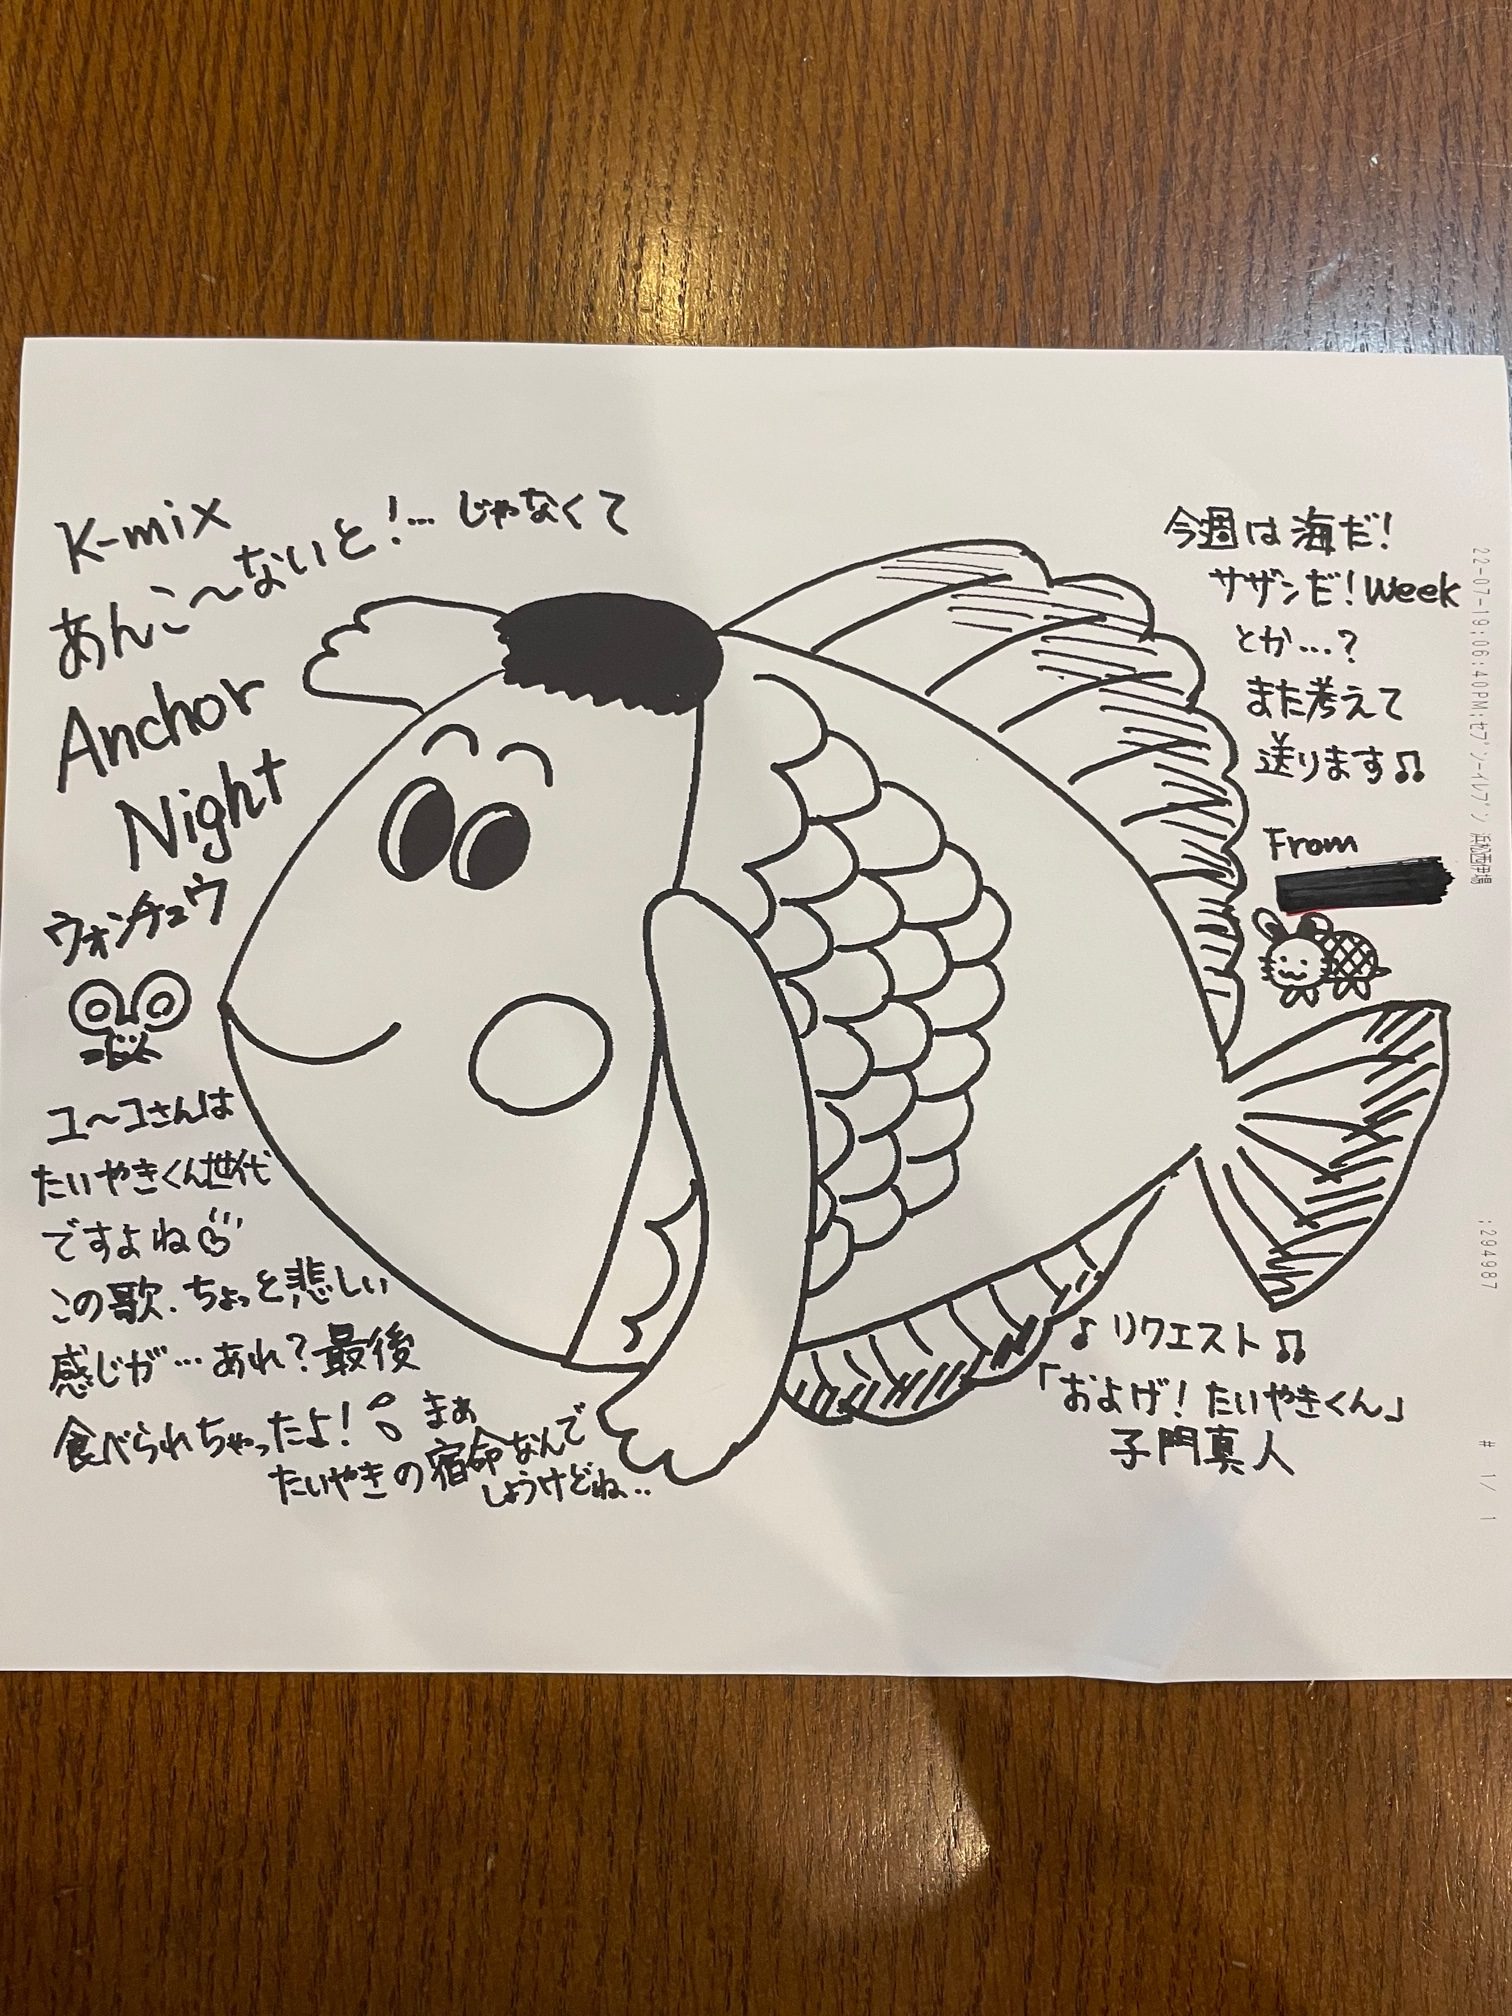 K-mix
あんこ〜ないと!… じゃなくて
Anchor
Night
ウォンチュウ
ユ〜コさんは
たいやきくん世代
ですよね
この歌、ちょっと悲しい
感じが…あれ?最後
食べられちゃったよ! まぁ
たいやきの宿命なんで
しょうけどね..
今週は海だ!
サザンだ!Week
とか…?
また考えて
送ります♫
From
♪リクエスト♫
「およげ!たいやきくん」
子門真人
22-07-19;06:40PM;セブン-イレブン 浜松西伊場
;294987
# 1/ 1